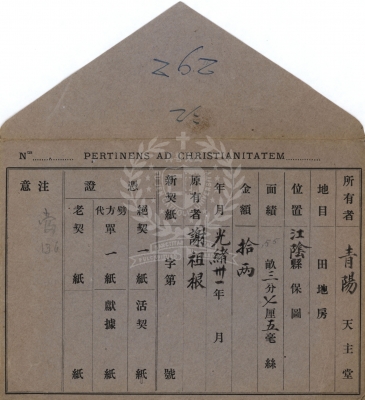 292
Nᵘˢ PERTINENS AD CHRISTIANITATEM
所有者 青陽 天主堂
地目 田地房
位置 江陰縣 保 圖
面績 畝三分 厘五毫 絲
金額 拾兩
年月 光緒卅一年 月
原有者 謝祖根
新契紙 字第 號
憑證 絕契一紙 活契 紙
劈方代單一紙 獻據 紙
老契 紙
注意